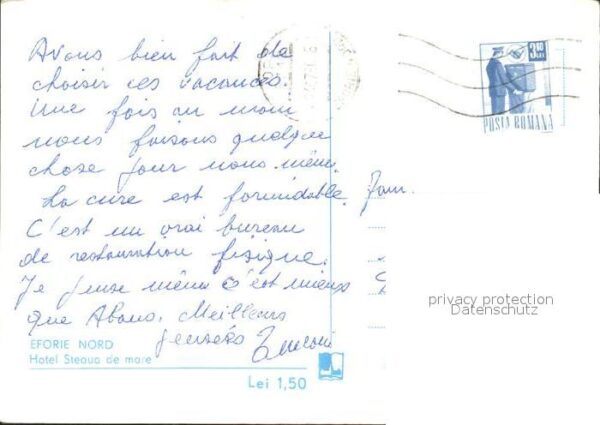 Avons bien fait de
choisir ces vacances.
Une fois au moin
nous faisons quelque
chose pour nous même.
La cure est formidable.
C'est un vrai bureau
de restauration fisique.
Je pense même c'est mieux
que Abano. Meilleurs
pensées
EFORIE NORD
Hotel Steaua de mare
Lei 1,50
Fam.
3,40
LEI
POSTA ROMANA
privacy protection
Datenschutz